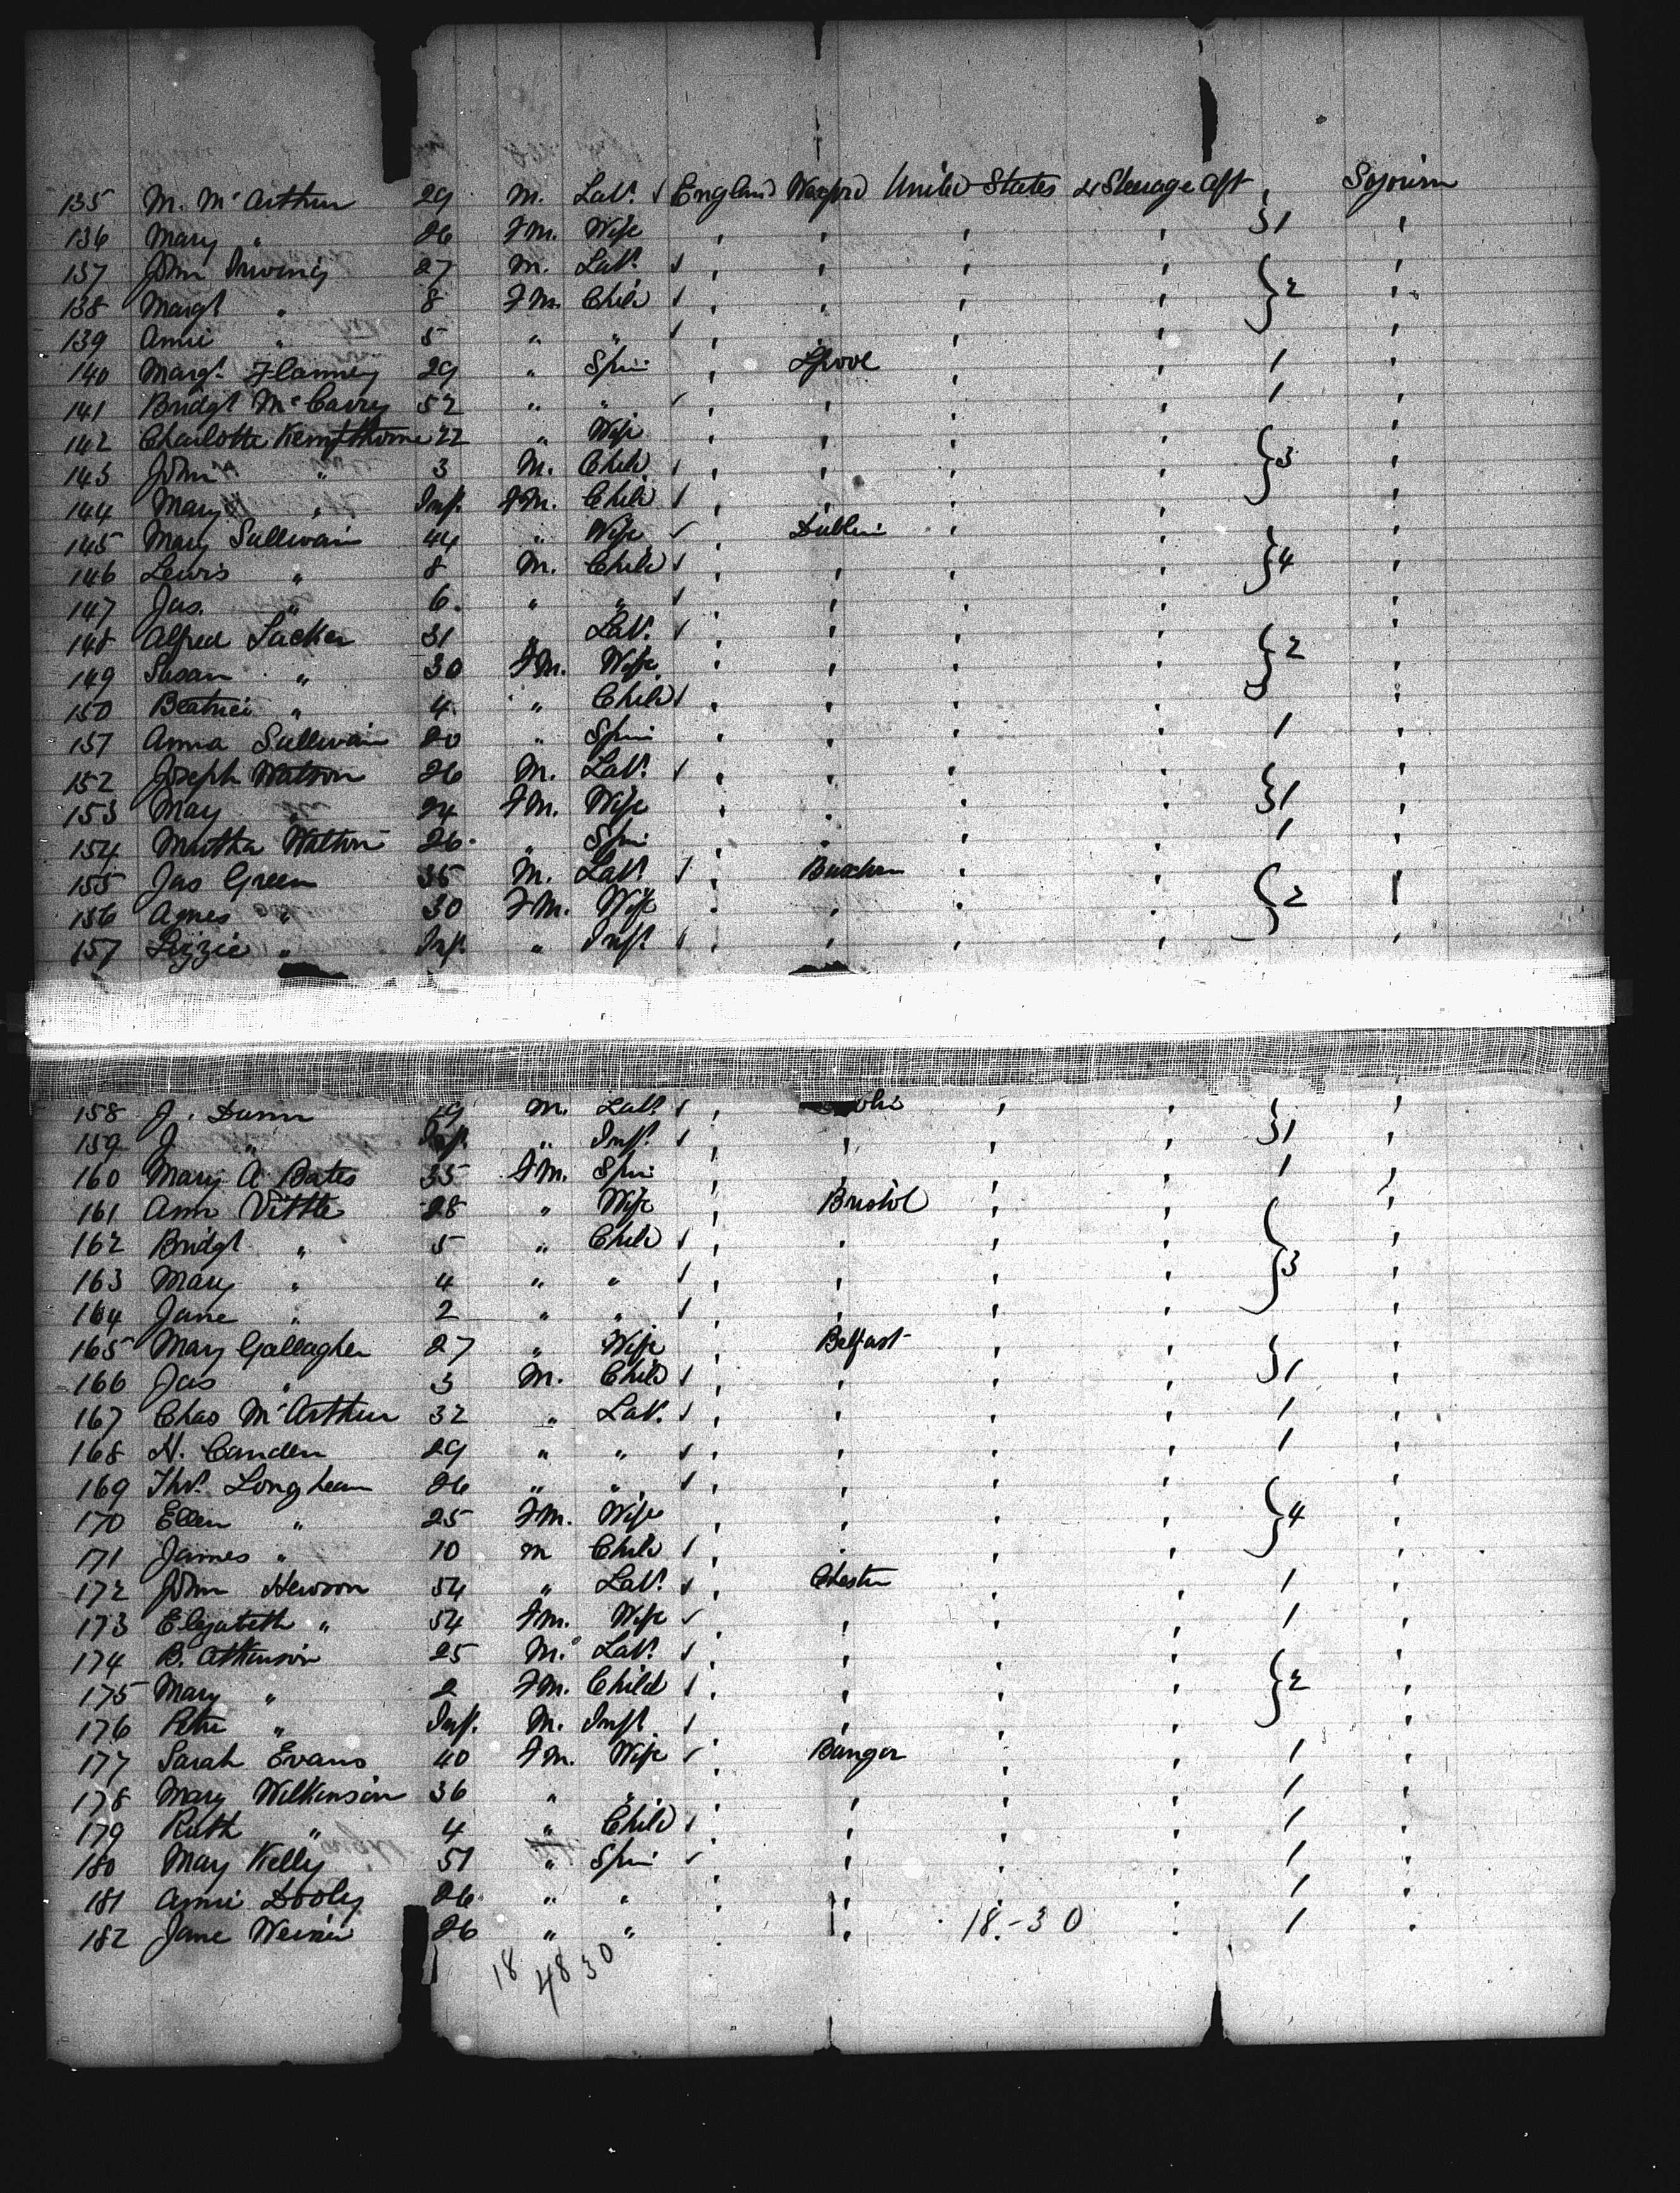 135 M. McArthur 29 M. Labr. England United States 4 Steerage Aft 1 Sojourn
136 Mary " 26 FM. Wife
137 John Irving 27 M. Labr. 2
138 Margt " 8 FM. Child
139 Annie " 5 " "
140 Margt. Flannery 29 " Spin Lpool 1
141 Bridgt McCarry 52 " " 1
142 Charlotte Kempthorne 22 " Wife 3
143 John " 3 M. Child
144 Mary " Inf. FM. Child
145 Mary Sullivan 44 " Wife Dublin 4
146 Lewis " 8 M. Child
147 Jas. " 6 " "
148 Alfred 31 " Labr. 2
149 Susan " 30 FM. Wife
150 Beatrice " 4 " Child
151 Anna Sullivan 20 " Spin 1
152 Joseph Watson 26 M. Labr. 1
153 May " 24 FM. Wife
154 Martha Walton 26 " Spin 1
155 Jas Green 35 M. Labr. 2
156 Agnes " 30 FM. Wife
157 Lizzie " Inf. " Inft.
158 J. Dunn 29 M. Labr. 1
159 J. " Inf. " Inft.
160 Mary A Bates 35 FM. Spin 1
161 Ann Vittle 28 " Wife Bristol 3
162 Bridgt " 5 " Child
163 Mary " 4 " "
164 Jane " 2 " "
165 Mary Gallagher 27 " Wife Belfast 1
166 Jas " 3 M. Child
167 Chas McArthur 32 " Labr. 1
168 H. Camden 29 " " 1
169 Thos. Longhean 26 " " 4
170 Ellen " 25 FM. Wife
171 James " 10 m Child
172 John Hewson 54 " Labr. Chester 1
173 Elizabeth " 54 FM. Wife 1
174 B. Atkinson 25 M. Labr. 2
175 Mary " 2 FM. Child
176 Peter " Inf. M. Inft.
177 Sarah Evans 40 FM. Wife Bangor 1
178 Mary Wilkinson 36 " " 1
179 Ruth " 4 " Child 1
180 May Kelly 51 " Spin 1
181 Annie Dooley 26 " " 1
182 Jane 26 " " 18-30 1
18 48 30